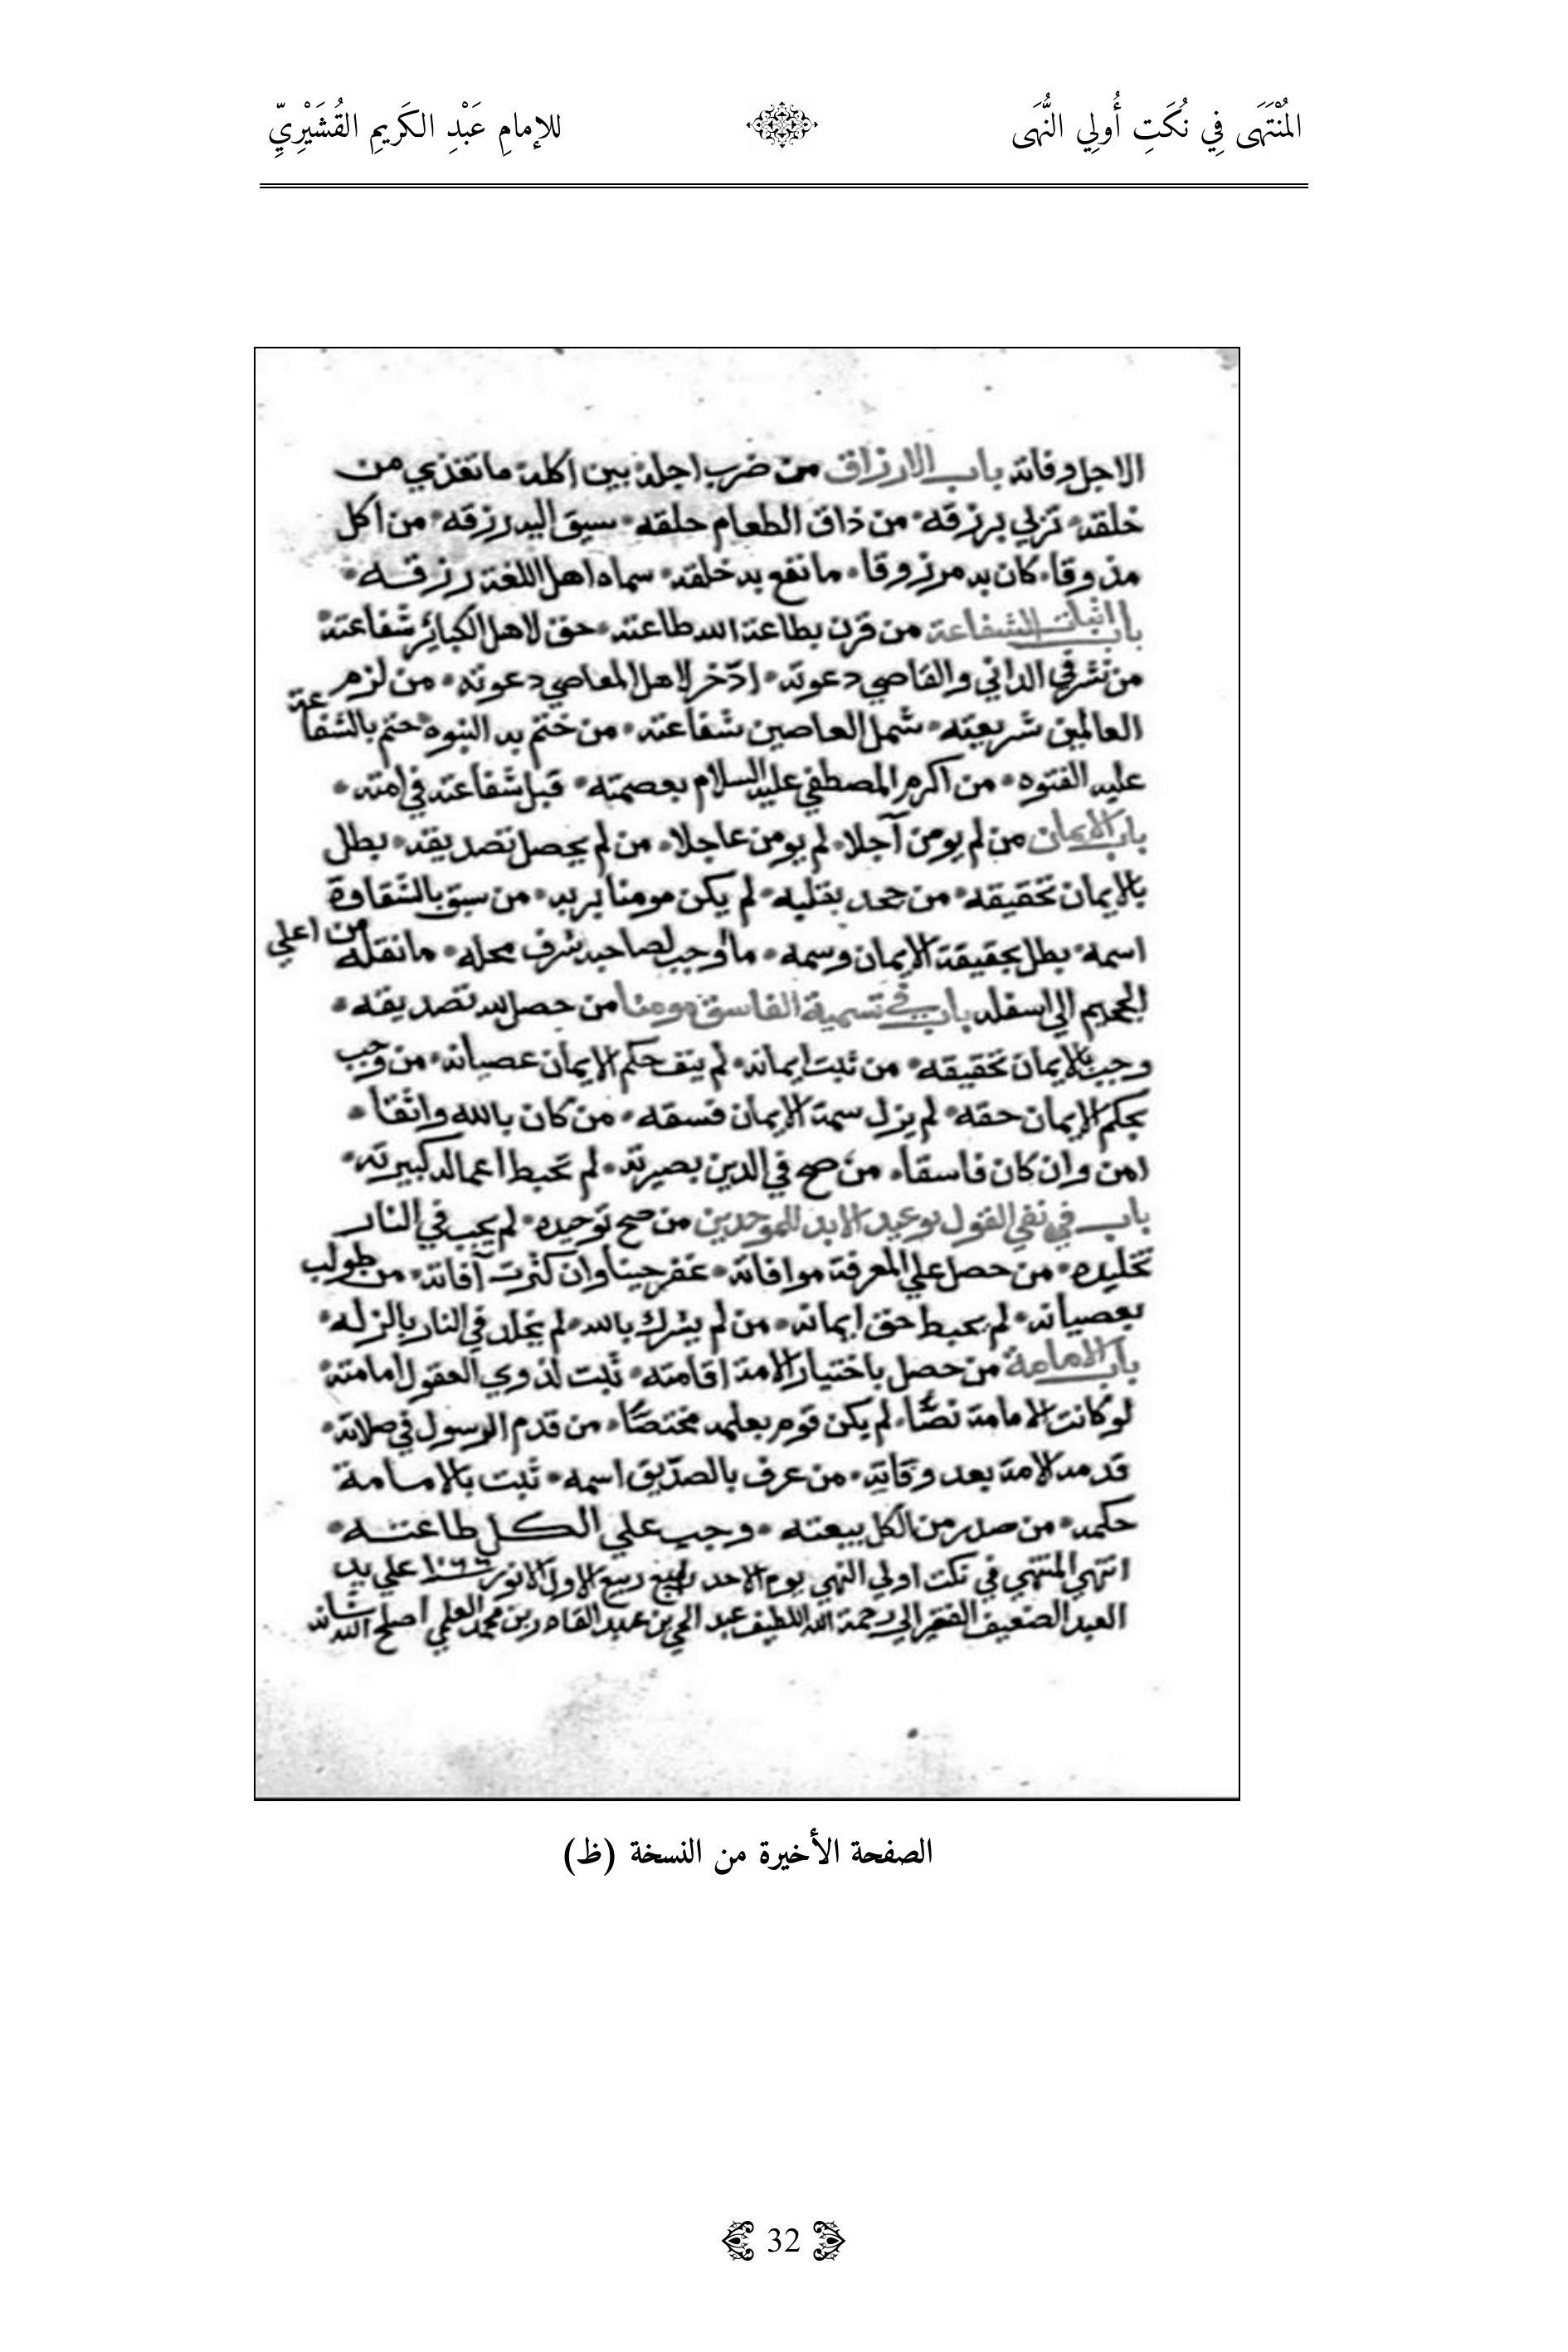 المُنْتَهَى فِي نُكَتِ أُولِي النُّهَى
للإمامِ عَبْدِ الكَرِيمِ القُشَيْرِيِّ
الاجل وفاته باب الارزاق من ضرب اجله بين اكله ما تغذي من
خلقه تربي برزقه من ذاق الطعام حلقه سيق اليه رزقه من اكل
مذوقا كان به مرزوقا ما نفع به خلقه سماه اهل اللغة رزقه
باب اثبات الشفاعة من قرن بطاعة الله طاعته حق لاهل الكبائر شفاعته
من نشر في الداني والقاصي دعوته ادّخر لاهل المعاصي دعوته من لزم
العالمين شريعته شمل العاصين شفاعته من ختم به النبوه ختم بالشفاعة
عليه الفتوه من اكرم المصطفي عليه السلام بعصمته قبل شفاعته في امته
باب الايمان من لم يومن آجلا لم يومن عاجلا من لم يحصل تصديقه بطل
بالايمان تحقيقه من جحد بقلبه لم يكن مومنا بربه من سبق بالشقاوة
اسمه بطل بحقيقة الايمان وسمه ما اوجب لصاحبه شرف محله ما نقله من اعلي
الجحيم الي اسفله باب في تسمية الفاسق مومنا من حصل لله تصديقه
وجب بالايمان تحقيقه من ثبت ايمانه لم ينف حكم الايمان عصيانه من وجب
بحكم الايمان حقه لم يزل سمة الايمان فسقه من كان بالله واثقا
امن وان كان فاسقا من صح في الدين بصيرته لم تحبط اعماله كبيرته
باب في نفي القول بوعيد الابد للموحدين من صح توحيده لم يجب في النار
تخليده من حصل علي المعرفة موافاته غفر حينا وان كثرت آفاته من طولب
بعصيانه لم يحبط حق ايمانه من لم يشرك بالله لم يخلد في النار بالزله
باب الامامة من حصل باختيار الامة اقامته ثبت لذوي العقول امامته
لو كانت الامامة نصّا لم يكن قوم بعلمه مختصّا من قدم الرسول في صلاته
قدمه الامة بعد وفاته من عرف بالصدّيق اسمه ثبت بالامامة
حكمه من صدر من الكل بيعته وجب علي الكل طاعته
انتهي المنتهي في نكت اولي النهي يوم الاحد ربيع الاول الانور علي يد
العبد الضعيف الفقير الي رحمة الله اللطيف عبد الحي بن عبد القادر بن محمد العلمي اصلح الله شانه
الصفحة الأخيرة من النسخة (ظ)
32